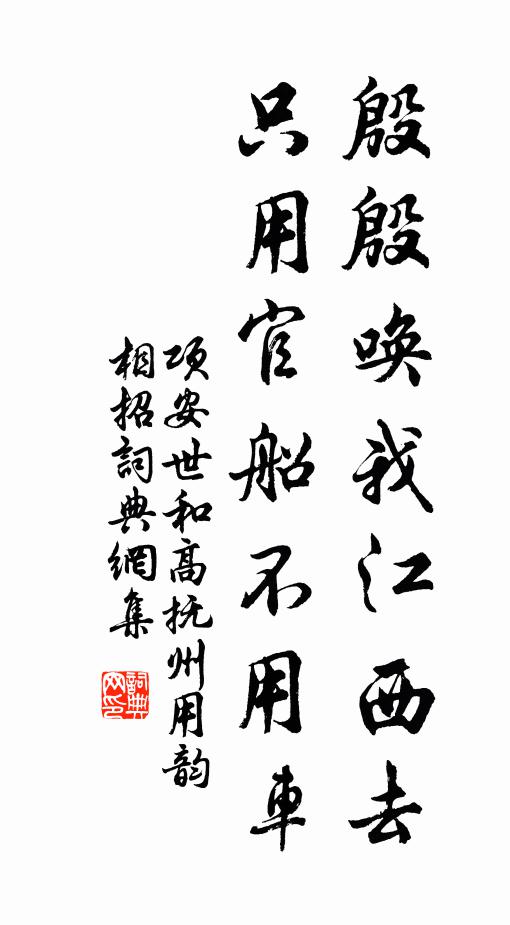 殷殷唤我江西去
只用官船不用車
项安世和高抚州用韵
相招詞典網集
詞典網印